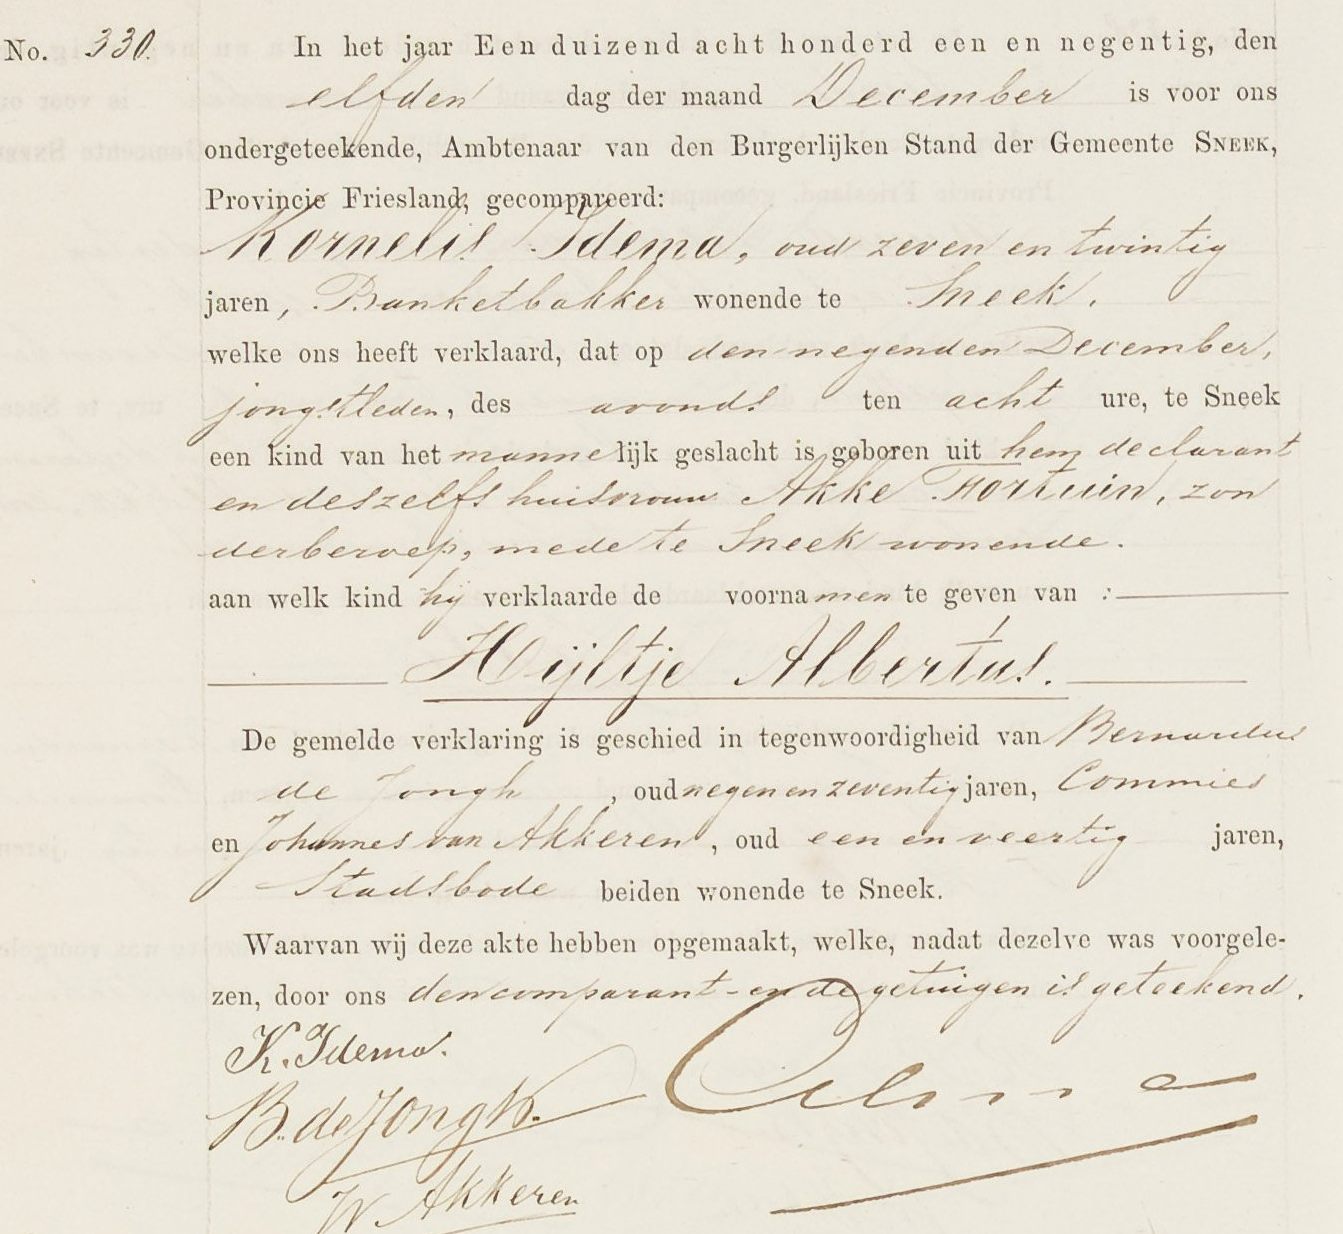 No. 330. In het jaar Een duizend acht honderd een en negentig, den
elfden dag der maand December is voor ons
ondergeteekende, Ambtenaar van den Burgerlijken Stand der Gemeente Sneek,
Provincie Friesland, gecompareerd:
Kornelis Idema, oud zeven en twintig
jaren, Banketbakker wonende te Sneek.
welke ons heeft verklaard, dat op den negenden December,
jongstleden, des avonds ten acht ure, te Sneek
een kind van het mannelijk geslacht is geboren uit hem declarant
en deszelfs huisvrouw Akke Fortuin, zon
der beroep, mede te Sneek wonende.
aan welk kind hij verklaarde de voornamen te geven van :
Hijltje Albertus.
De gemelde verklaring is geschied in tegenwoordigheid van Bernardus
de Jongh, oud negen en zeventig jaren, Commies
en Johannes van Akkeren, oud een en veertig jaren,
Stadsbode beiden wonende te Sneek.
Waarvan wij deze akte hebben opgemaakt, welke, nadat dezelve was voorgele-
zen, door ons den comparant en de getuigen is geteekend.
K. Idema.
B. de Jongh.
V. Akkeren